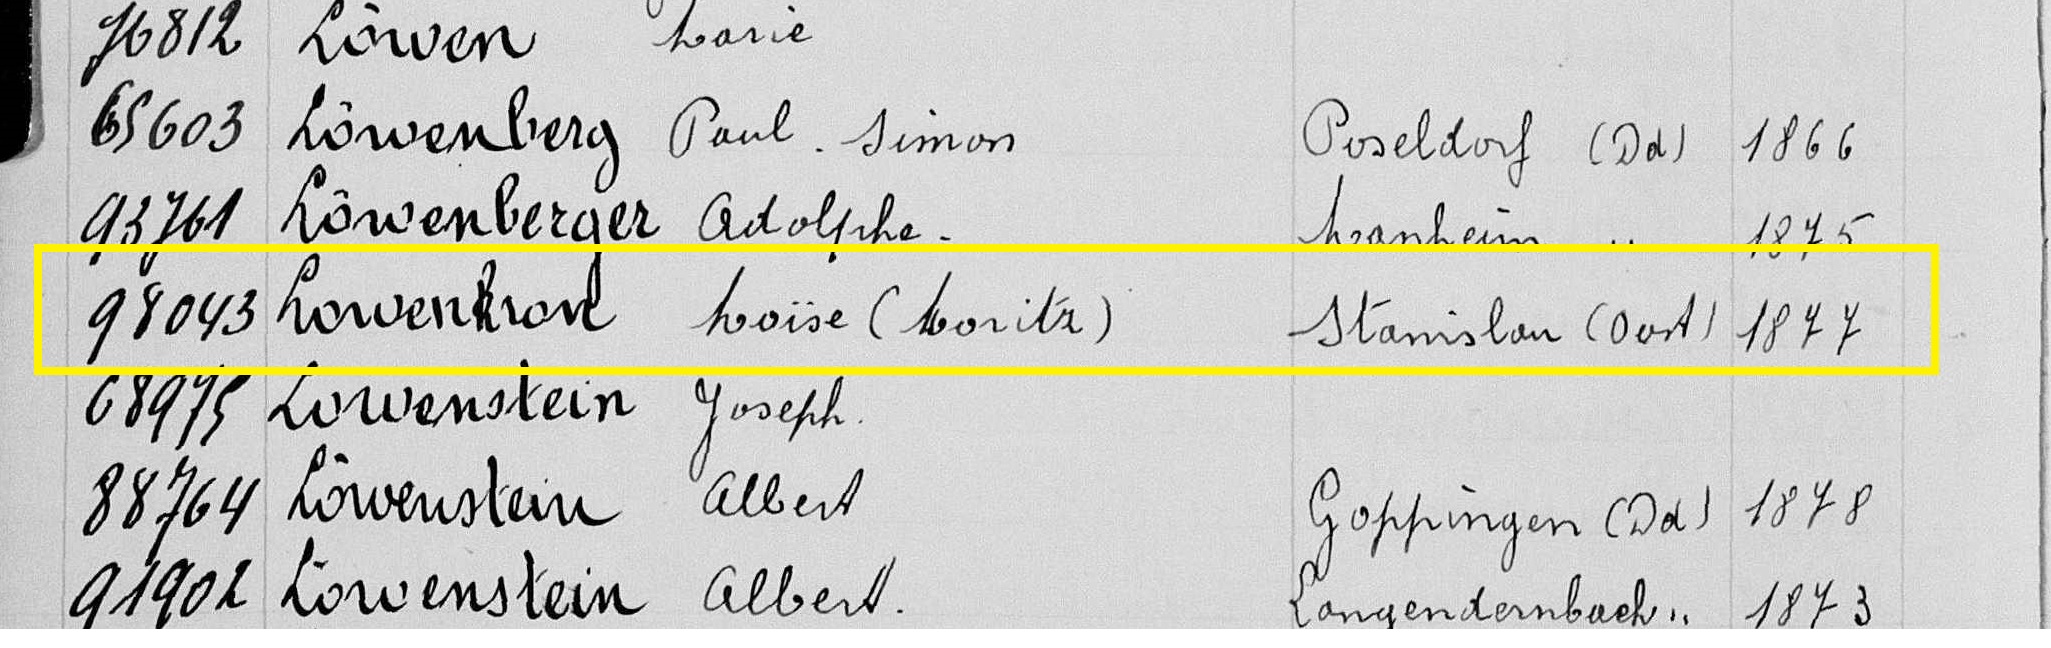 76812 Löwen Marie
65603 Löwenberg Paul. Simon Poseldorf (Dd) 1866
93761 Löwenberger Adolphe. Manheim " 1875
98043 Lowenkron Moïse (Moritz) Stanislau (Oost) 1877
68975 Lowenstein Joseph.
88764 Löwenstein Albert Goppingen (Dd) 1878
91902 Löwenstein Albert. Langendernbach " 1873